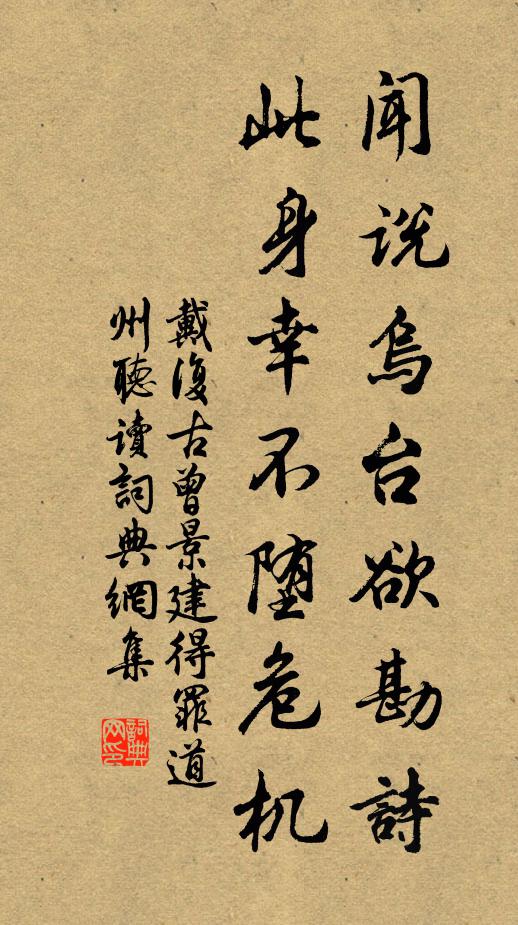 闻说乌台欲勘詩
此身幸不堕危机
戴復古曾景建得罪道
州聽讀詞典網集
詞典网印